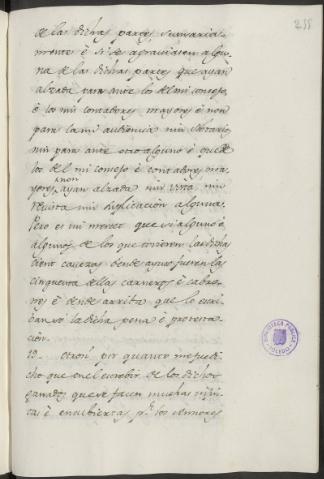 255
de las dichas partes, sumaria
mente è si se agraviasen algu
na de las dichas partes que ayan
alzada para ante los del mi consejo,
ò los mis contadores mayores è non
para la mi audiencia nin Notario,
nin para ante otro alguno è que de
los del mi consejo è contadores, ma
yores non ayan alzada nin vista nin
revista nin suplicación alguna.
Pero es mi merced que si alguno è
algunos de los que tovieren las dichas
cient cavezas dende ayuso fueren las
cinquenta dellas carneros è cabro
nes è dende arriba que lo escri
ban só la dicha pena è protesta
ción.
19 Otrosi por quanto me fue di
cho que en el escrebir de los dichos
ganados que se facen muchas
è encubiertas pr. los Señores
BIBLIOTECA PUBLICA
TOLEDO